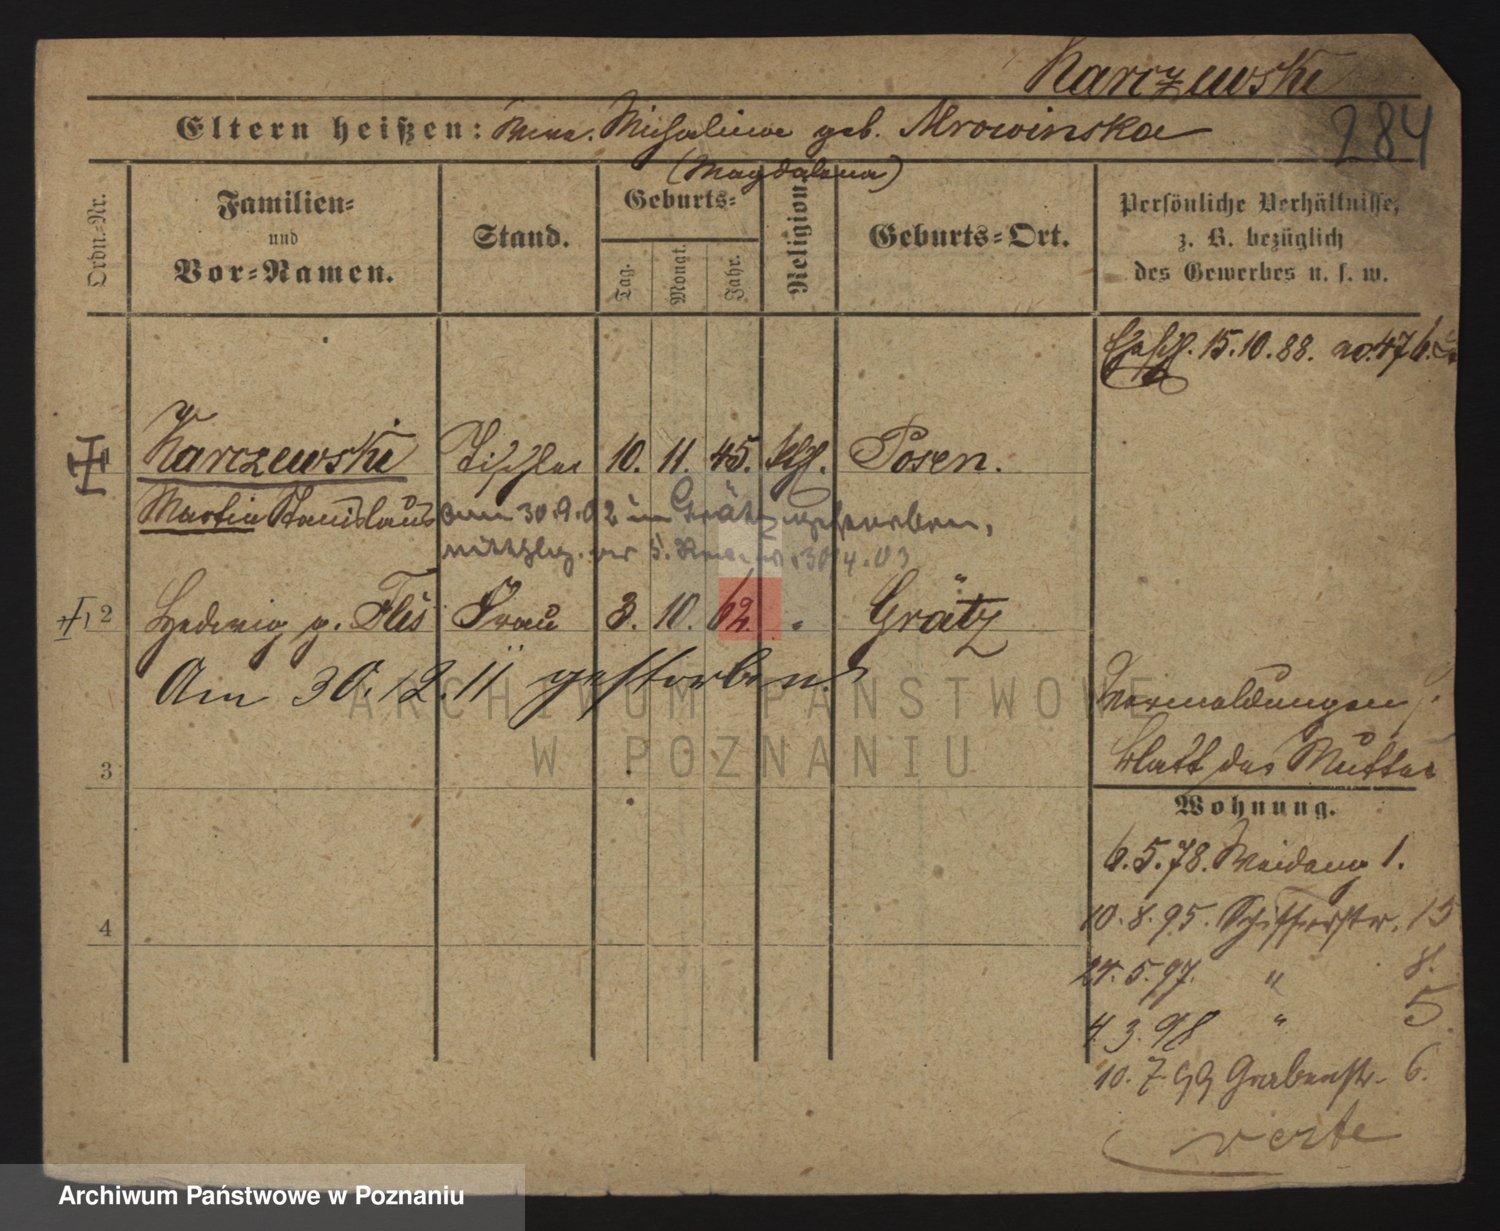 Karczewski
284
Eltern heißen: Michalina geb. Mrowinska
(Magdalena)
Ordn.-Nr.
Familien-
und
Vor-Namen.
Stand.
Geburts-
Tag.
Monat.
Jahr.
Religion.
Geburts-Ort.
Persönliche Verhältnisse,
z. B. bezüglich
des Gewerbes u. s. w.
15.10.88. no. 476.
1 Karczewski Tischler 10. 11. 45. kth. Posen.
Martin Stanislaus am 30.9.02 in Grätz gestorben,
2 Hedwig g. Flis Frau 3. 10. 62. " Grätz
Am 30.12.11 gestorben.
Vermeldungen
Blatt der Mutter
3
4
Wohnung.
6.5.78. Weideng 1.
10.8.95. Schifferstr. 15
24.5.97. " 8.
4.3.98 " 5
10.7.99 Grabenstr. 6.
verte
ARCHIWUM PAŃSTWOWE
W POZNANIU
Archiwum Państwowe w Poznaniu